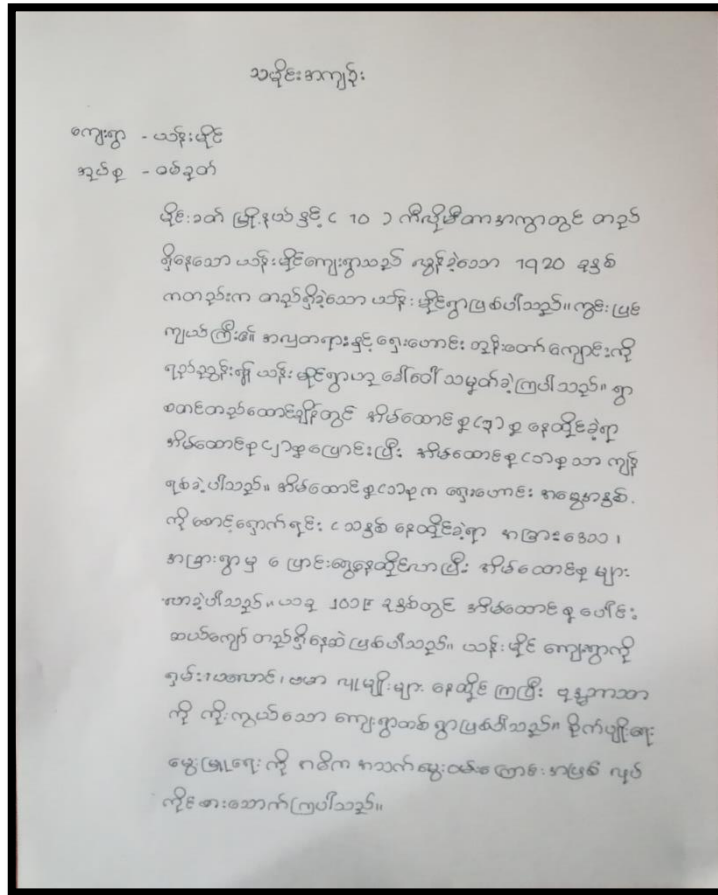 သမိုင်းအကျဉ်း
ကျေးရွာ - ယန်းမိုင်
အုပ်စု - ဝမ်ခွတ်
မိုင်းခတ် မြို့နယ်နှင့် ( 10 ) ကီလိုမီတာအကွာတွင် တည်
ရှိနေသော ယန်းမိုင်ကျေးရွာသည် လွန်ခဲ့သော 1920 ခုနှစ်
ကတည်းက တည်ရှိခဲ့သော ယန်းမိုင်ရွာဖြစ်ပါသည်။ ကွင်းပြင်
ကျယ်ကြီး၏ အလှတရားနှင့် ရှေးဟောင်း တွန်တော်ကျောင်းကို
ရည်ညွှန်း၍ ယန်းမိုင်ရွာဟု ခေါ်ဝေါ် သမုတ်ခဲ့ကြပါသည်။ ရွာ
စတင်တည်ထောင်ချိန်တွင် အိမ်ထောင်စု (၃) စု နေထိုင်ခဲ့ရာ
အိမ်ထောင်စု (၂) စုပြောင်းပြီး အိမ်ထောင်စု (၁) စုသာ ကျန်
ရစ်ခဲ့ပါသည်။ အိမ်ထောင်စု (၁) စုက ရှေးဟောင်း အမွေအနှစ်
ကို စောင့်ရှောက်ရင်း ၎သနှစ် နေထိုင်ခဲ့ရာ အခြားဒေသ၊
အခြားရွာမှ ပြောင်းရွှေ့နေထိုင်လာပြီး အိမ်ထောင်စု များ
လာခဲ့ပါသည်။ ယခု ၂၀၁၉ ခုနှစ်တွင် အိမ်ထောင်စု ပေါင်း
ဆယ်ကျော် တည်ရှိနေဆဲဖြစ်ပါသည်။ ယန်းမိုင် ကျေးရွာကို
ရှမ်း၊ပလောင်၊ ဗမာ လူမျိုးများ နေထိုင် ကြပြီး ဗုဒ္ဓဘာသာ
ကို ကိုးကွယ်သော ကျေးရွာတစ် ရွာဖြစ်ပါသည်။ စိုက်ပျိုးရေး
မွေးမြူရေး ကို အဓိက အသက်မွေးဝမ်းကြောင်းအဖြစ် လုပ်
ကိုင်စားသောက်ကြပါသည်။